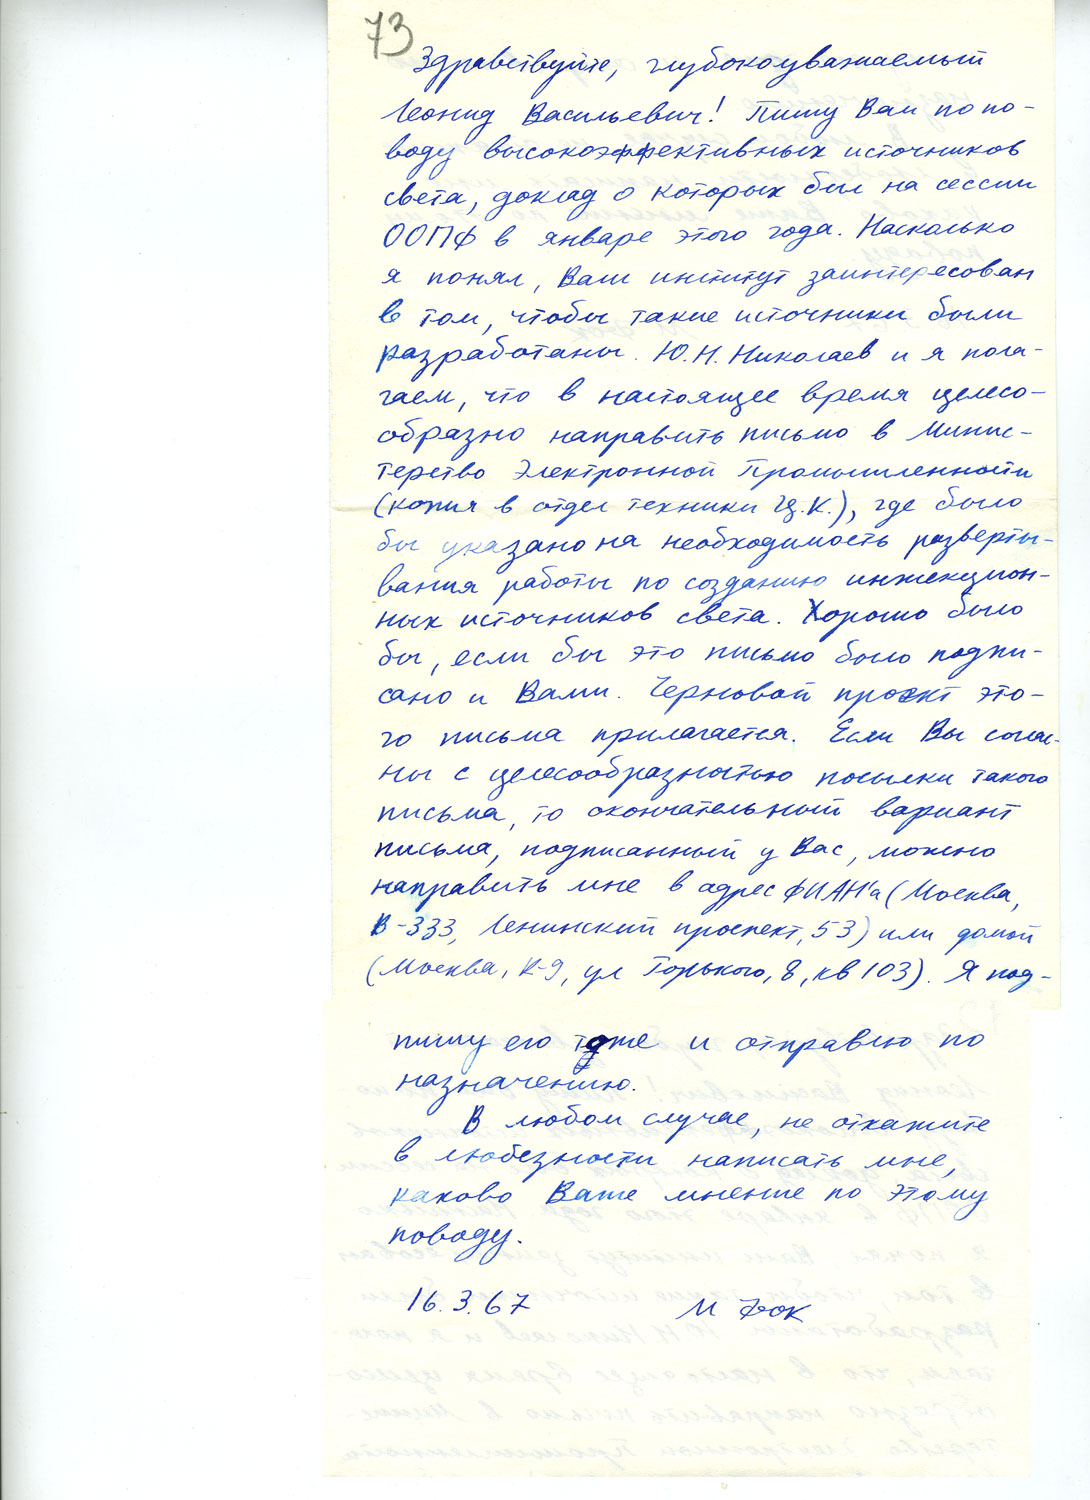 73
Здравствуйте, глубокоуважаемый
Леонид Васильевич! Пишу Вам по по-
воду высокоэффективных источников
света, доклад о которых был на сессии
ООПФ в январе этого года. Насколько
я понял, Ваш институт заинтересован
в том, чтобы такие источники были
разработаны. Ю.Н. Николаев и я пола-
гаем, что в настоящее время целесо-
образно направить письмо в Минис-
терство Электронной Промышленности
(копия в отдел техники Ц.К.), где было
бы указано на необходимость разверты-
вания работы по созданию инжекцион-
ных источников света. Хорошо было
бы, если бы это письмо было подпи-
сано и Вами. Черновой проект это-
го письма прилагается. Если Вы соглас-
ны с целесообразностью посылки такого
письма, то окончательный вариант
письма, подписанный у Вас, можно
направить мне в адрес ФИАН'а (Москва,
В-333, Ленинский проспект, 53) или домой
(Москва, К-9, ул Горького, 8, кв 103). Я под-
пишу его тоже и отправлю по
назначению.
В любом случае, не откажите
в любезности написать мне,
каково Ваше мнение по этому
поводу.
16.3.67 М Фок